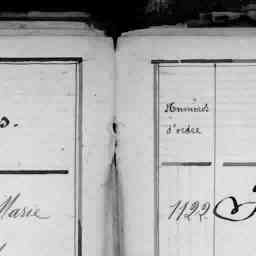 s.
Marie
Numéros
d'ordre
1122